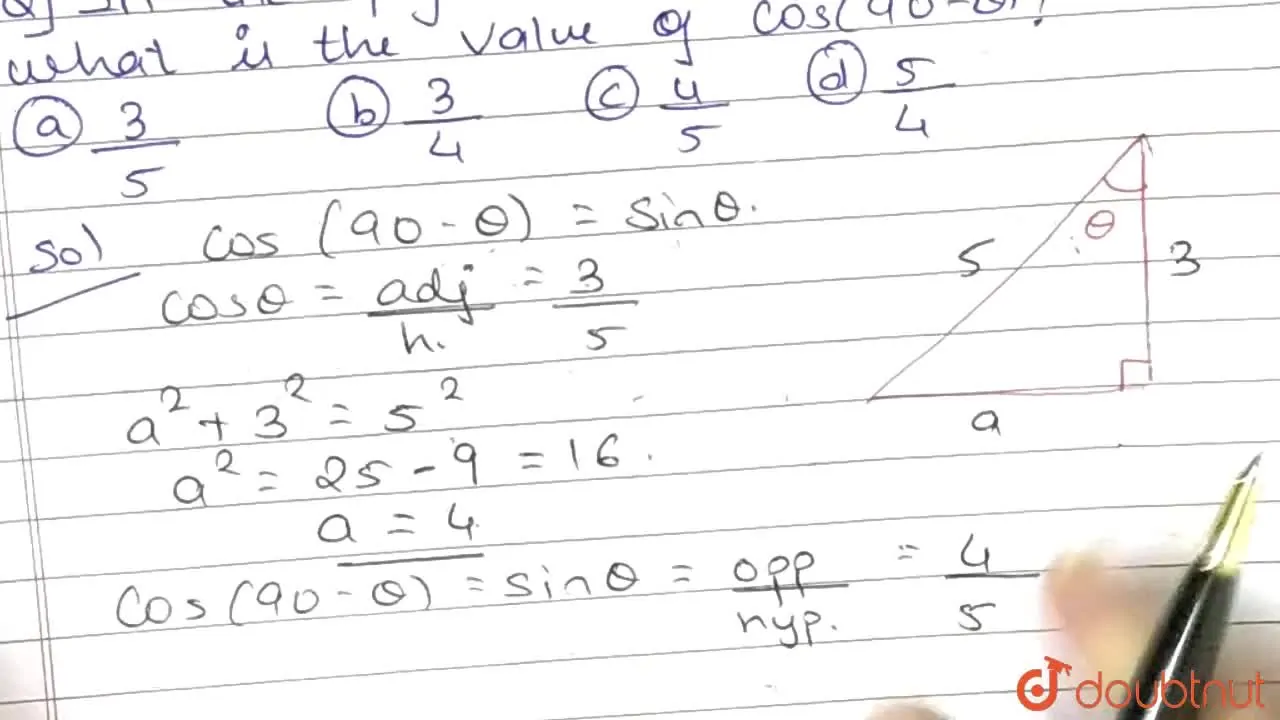 what is the value of cos(90-θ)?
(a) 3/5 (b) 3/4 (c) 4/5 (d) 5/4
Sol cos (90-θ) = sinθ.
cosθ = adj/h. = 3/5
a² + 3² = 5²
a² = 25 - 9 = 16.
a = 4
cos(90-θ) = sinθ = opp/hyp. = 4/5
θ
5
3
a
doubtnut